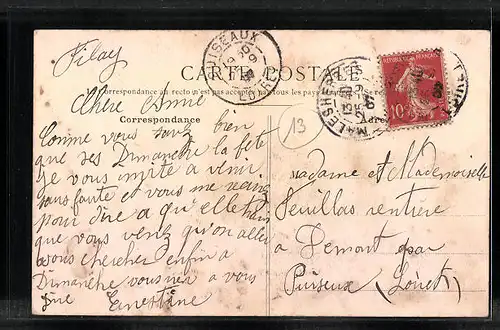 Filay
PUISEAUX
LOIRET
CARTE POSTALE
Correspondance au recto n'est pas acceptée par tous les pays
MALESHERBES
LOIRET
REPUBLIQUE FRANÇAISE
10
Correspondance
Adres
13
Chère Amie
Comme vous savez bien
que ses Dimanche la fête
je vous invite a venir
sans faute et vous me
pour dire a qu'elle
que vous venez qu'on alle
vous chercher enfin a
Dimanche a vous
Ernestine
Madame et Mademoiselle
Feuillas rentière
a par
Puiseux (Loiret)